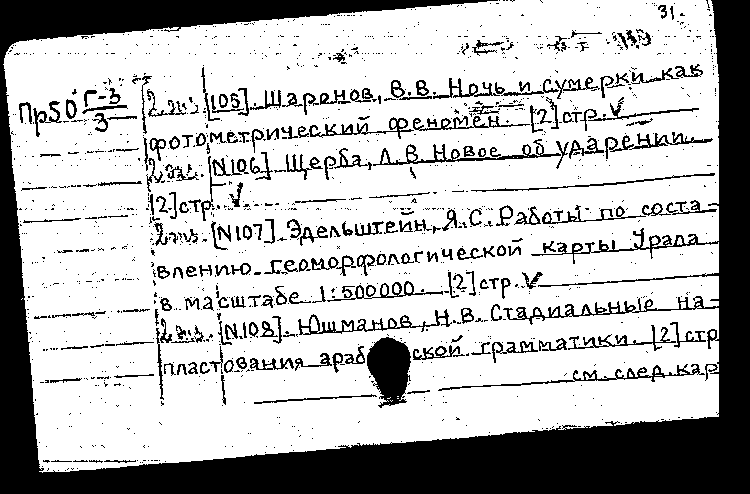 31.
Пр50 Г-3/3
2 экз. [105]. Шаронов, В.В. Ночь и сумерки как
фотометрический феномен. [2] стр. V
2 экз. [N106]. Щерба, Л.В. Новое об ударении.
[2] стр. V
2 экз. [N107]. Эдельштейн, Я.С. Работы по соста-
влению геоморфологической карты Урала
в масштабе 1:500000. [2] стр. V
2 экз. [N108]. Юшманов, Н.В. Стадиальные на-
пластования араб ской грамматики. [2] стр
см. след. кар